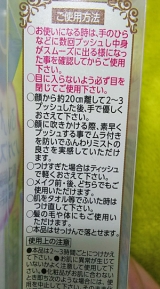 ご使用方法
○お使いになる時は、手のひら
などに数回プッシュし中身
がスムーズに出る様になっ
た事を確認してからご使用
下さい。
○目に入らないよう必ず目を
閉じてご使用下さい。
○顔から約20cm離して2〜3
プッシュした後、手で優しく
おさえて下さい。
○顔に吹きかける際、素早く
プッシュする事でムラ付き
を防いでふんわりミストの
良さを実感していただけ
ます。
○つけすぎた場合はティッシュ
で軽くおさえて下さい。
○メイク前・後、どちらでもご
使用いただけます。
○肌をタオル等でふいた時は
つけ直して下さい。
○髪の毛や体にもご使用い
ただけます。
○本品はせっけんで落とせます。
使用上の注意
●本品は2〜3時間ごとにつけ直して
下さい。●お肌に異常が生じて
いないかよく注意して
ください。●化粧品がお肌に